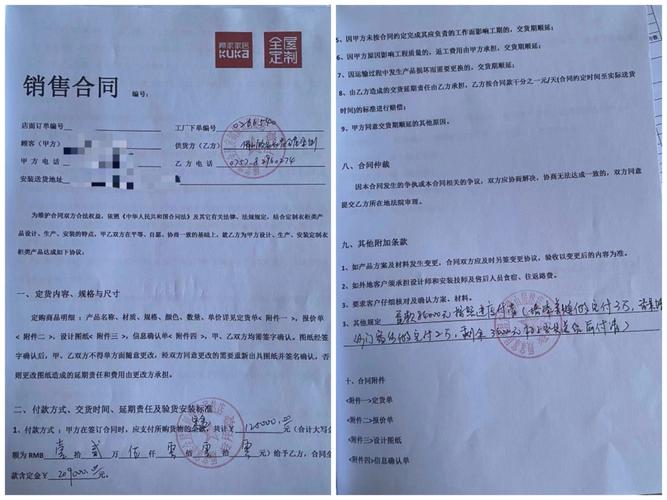 顾家家居
KUKA
全屋
定制
销售合同 编号:
店面订单编号 工厂下单编号
顾客(甲方) 供货方(乙方)
甲方电话 乙方电话
安装送货地址
为维护合同双方合法权益,依照《中华人民共和国合同法》及其它有关法律、法规规定,结合定制衣柜类产
品设计、生产、安装的特点,甲乙双方在平等、自愿、协商一致的基础上,就乙方为甲方设计、生产、安装定制衣
柜类产品达成如下协议:
一、定货内容、规格与尺寸
定购商品明细:产品名称、材质、规格、颜色、数量、单价详见定货单<附件一>,报价单
<附件二>,设计图纸<附件三>,信息确认单<附件四>,甲、乙双方均需签字确认。图纸经签
字确认后,甲、乙双方不得单方面随意改化。经双方同意更改的需要重新出具图纸并签名确认,否
则更改图纸造成的延期责任和费用由更改方承担。
二、付款方式、交货时间、延期责任及验货安装标准
1、付款方式:甲方在签订合同时,应支付所购货物的余款,共计¥ 125000.00 (合计大写金
额为RMB 壹 拾 贰 万 伍 仟 零 佰 零 拾 零 元)给予乙方,合同金
含定金¥ 209000.00 元。
5、因甲方未按合同约定完成其应负责的工作而影响工期的,交货期顺延;
6、因甲方原因影响工程质量的,返工费用由甲方承担,交货期顺延;
7、因运输过程中发生产品损坏而需要更换的,交货期顺延;
8、由乙方造成的交货延期责任由乙方承担,乙方按合同款千分之一元/天(合同约定时间至实际送货
时间)的标准进行赔偿;
9、甲方同意交货期顺延的其他原因。
八、合同仲裁
因本合同发生的争执或本合同相关的争议,双方应协商解决,协商无法达成一致的,双方同意
提交乙方所在地法院审理。
九、其他附加条款
1、如产品方案及材料发生变更,合同双方应及时另签变更协议,验收以变更后的内容为准。
2、如外地客户须承担设计师和安装技师及售后人员食宿、往返路费。
3、要求客户仔细核对及确认方案、材料。
3、其他规定
十、合同附件
<附件一>定货单
<附件二>报价单
<附件三>设计图纸
<附件四>信息确认单